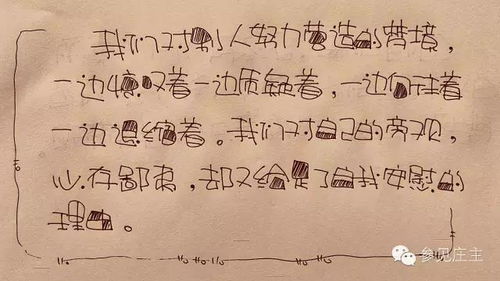 我们对别人努力营造的梦境，
一边慎叹着一边质疑着，一边向往着
一边退缩着。我们对自己的旁观，
心存鄙夷，却又给足了自我安慰的
理由。
参见庄主